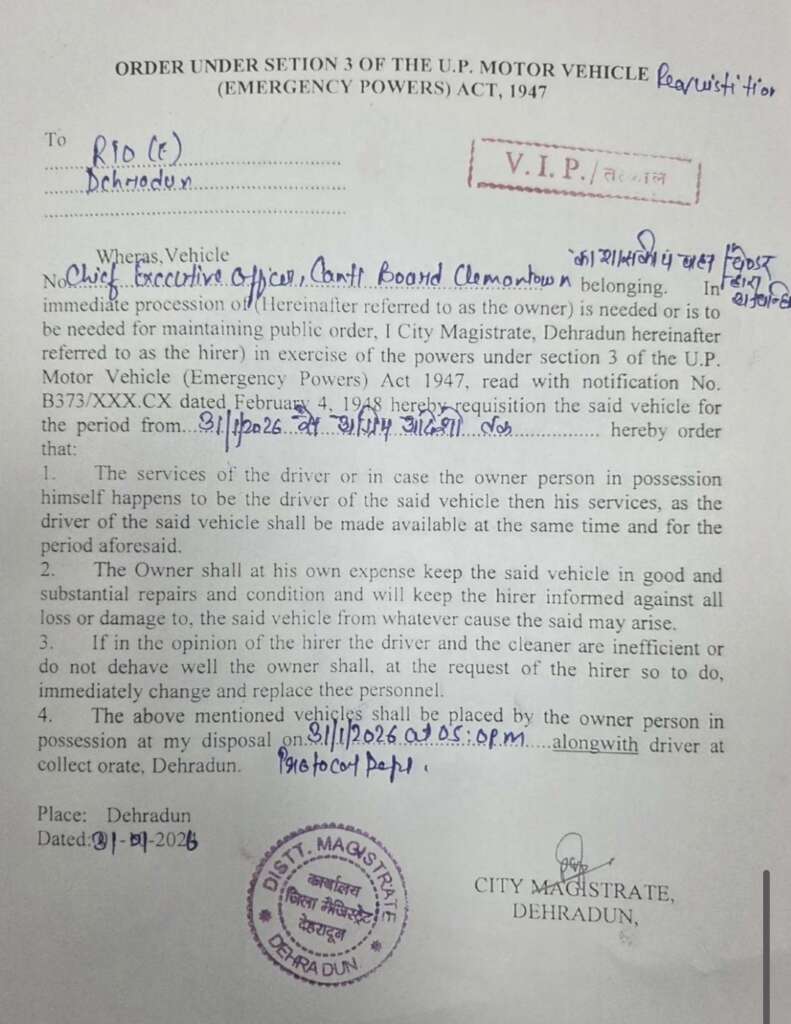 ORDER UNDER SETION 3 OF THE U.P. MOTOR VEHICLE
(EMERGENCY POWERS) ACT, 1947
To
RTO (E)
Dehradun
V.I.P./तत्काल
Wheras,Vehicle
No.Chief Executive Officer, Cantt Board Clemantown belonging. In
immediate procession of (Hereinafter referred to as the owner) is needed or is to
be needed for maintaining public order, I City Magistrate, Dehradun hereinafter
referred to as the hirer) in exercise of the powers under section 3 of the U.P.
Motor Vehicle (Emergency Powers) Act 1947, read with notification No.
B373/XXX.CX dated February 4, 1948 hereby requisition the said vehicle for
the period from 31/1/2026 से अग्रिम आदेशों तक hereby order
that:
1. The services of the driver or in case the owner person in possession
himself happens to be the driver of the said vehicle then his services, as the
driver of the said vehicle shall be made available at the same time and for the
period aforesaid.
2. The Owner shall at his own expense keep the said vehicle in good and
substantial repairs and condition and will keep the hirer informed against all
loss or damage to, the said vehicle from whatever cause the said may arise.
3. If in the opinion of the hirer the driver and the cleaner are inefficient or
do not dehave well the owner shall, at the request of the hirer so to do,
immediately change and replace thee personnel.
4. The above mentioned vehicles shall be placed by the owner person in
possession at my disposal on 31/1/2026 at 05:0pm alongwith driver at
collect orate, Dehradun. Protocol Dept.
Place: Dehradun
Dated:31-01-2026
DISTT. MAGISTRATE
कार्यालय
जिला मैजिस्ट्रेट
देहरादून
DEHRADUN
CITY MAGISTRATE,
DEHRADUN,